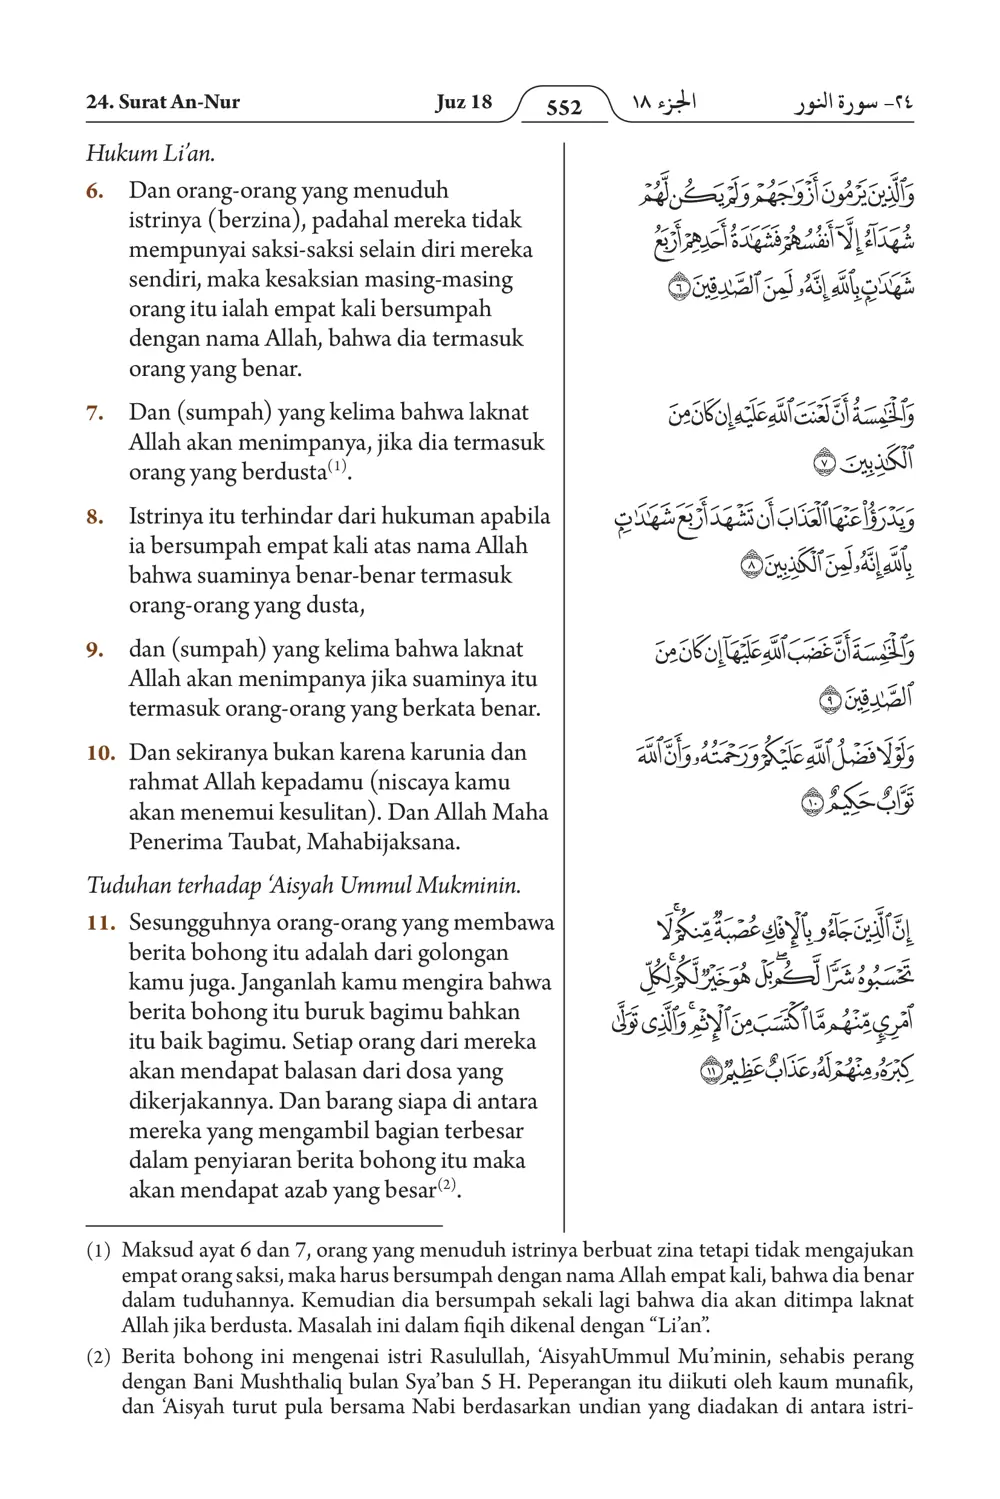 24. Surat An-Nur Juz 18 552 الجزء ١٨ ٢٤- سورة النور
Hukum Li’an.
6. Dan orang-orang yang menuduh
istrinya (berzina), padahal mereka tidak
mempunyai saksi-saksi selain diri mereka
sendiri, maka kesaksian masing-masing
orang itu ialah empat kali bersumpah
dengan nama Allah, bahwa dia termasuk
orang yang benar.
7. Dan (sumpah) yang kelima bahwa laknat
Allah akan menimpanya, jika dia termasuk
orang yang berdusta(1).
8. Istrinya itu terhindar dari hukuman apabila
ia bersumpah empat kali atas nama Allah
bahwa suaminya benar-benar termasuk
orang-orang yang dusta,
9. dan (sumpah) yang kelima bahwa laknat
Allah akan menimpanya jika suaminya itu
termasuk orang-orang yang berkata benar.
10. Dan sekiranya bukan karena karunia dan
rahmat Allah kepadamu (niscaya kamu
akan menemui kesulitan). Dan Allah Maha
Penerima Taubat, Mahabijaksana.
Tuduhan terhadap ‘Aisyah Ummul Mukminin.
11. Sesungguhnya orang-orang yang membawa
berita bohong itu adalah dari golongan
kamu juga. Janganlah kamu mengira bahwa
berita bohong itu buruk bagimu bahkan
itu baik bagimu. Setiap orang dari mereka
akan mendapat balasan dari dosa yang
dikerjakannya. Dan barang siapa di antara
mereka yang mengambil bagian terbesar
dalam penyiaran berita bohong itu maka
akan mendapat azab yang besar(2).
وَٱلَّذِينَ يَرْمُونَ أَزْوَٰجَهُمْ وَلَمْ يَكُن لَّهُمْ
شُهَدَآءُ إِلَّآ أَنفُسُهُمْ فَشَهَٰدَةُ أَحَدِهِمْ أَرْبَعُ
شَهَٰدَٰتٍۭ بِٱللَّهِ إِنَّهُۥ لَمِنَ ٱلصَّٰدِقِينَ ٦
وَٱلْخَٰمِسَةُ أَنَّ لَعْنَتَ ٱللَّهِ عَلَيْهِ إِن كَانَ مِنَ
ٱلْكَٰذِبِينَ ٧
وَيَدْرَؤُا۟ عَنْهَا ٱلْعَذَابَ أَن تَشْهَدَ أَرْبَعَ شَهَٰدَٰتٍۭ
بِٱللَّهِ إِنَّهُۥ لَمِنَ ٱلْكَٰذِبِينَ ٨
وَٱلْخَٰمِسَةَ أَنَّ غَضَبَ ٱللَّهِ عَلَيْهَآ إِن كَانَ مِنَ
ٱلصَّٰدِقِينَ ٩
وَلَوْلَا فَضْلُ ٱللَّهِ عَلَيْكُمْ وَرَحْمَتُهُۥ وَأَنَّ ٱللَّهَ
تَوَّابٌ حَكِيمٌ ١٠
إِنَّ ٱلَّذِينَ جَآءُو بِٱلْإِفْكِ عُصْبَةٌ مِّنكُمْ ۚ لَا
تَحْسَبُوهُ شَرًّا لَّكُم ۖ بَلْ هُوَ خَيْرٌ لَّكُمْ ۚ لِكُلِّ
ٱمْرِئٍ مِّنْهُم مَّا ٱكْتَسَبَ مِنَ ٱلْإِثْمِ ۚ وَٱلَّذِى تَوَلَّىٰ
كِبْرَهُۥ مِنْهُمْ لَهُۥ عَذَابٌ عَظِيمٌ ١١
(1) Maksud ayat 6 dan 7, orang yang menuduh istrinya berbuat zina tetapi tidak mengajukan
empat orang saksi, maka harus bersumpah dengan nama Allah empat kali, bahwa dia benar
dalam tuduhannya. Kemudian dia bersumpah sekali lagi bahwa dia akan ditimpa laknat
Allah jika berdusta. Masalah ini dalam fiqih dikenal dengan “Li’an”.
(2) Berita bohong ini mengenai istri Rasulullah, ‘AisyahUmmul Mu’minin, sehabis perang
dengan Bani Mushthaliq bulan Sya’ban 5 H. Peperangan itu diikuti oleh kaum munafik,
dan ‘Aisyah turut pula bersama Nabi berdasarkan undian yang diadakan di antara istri-